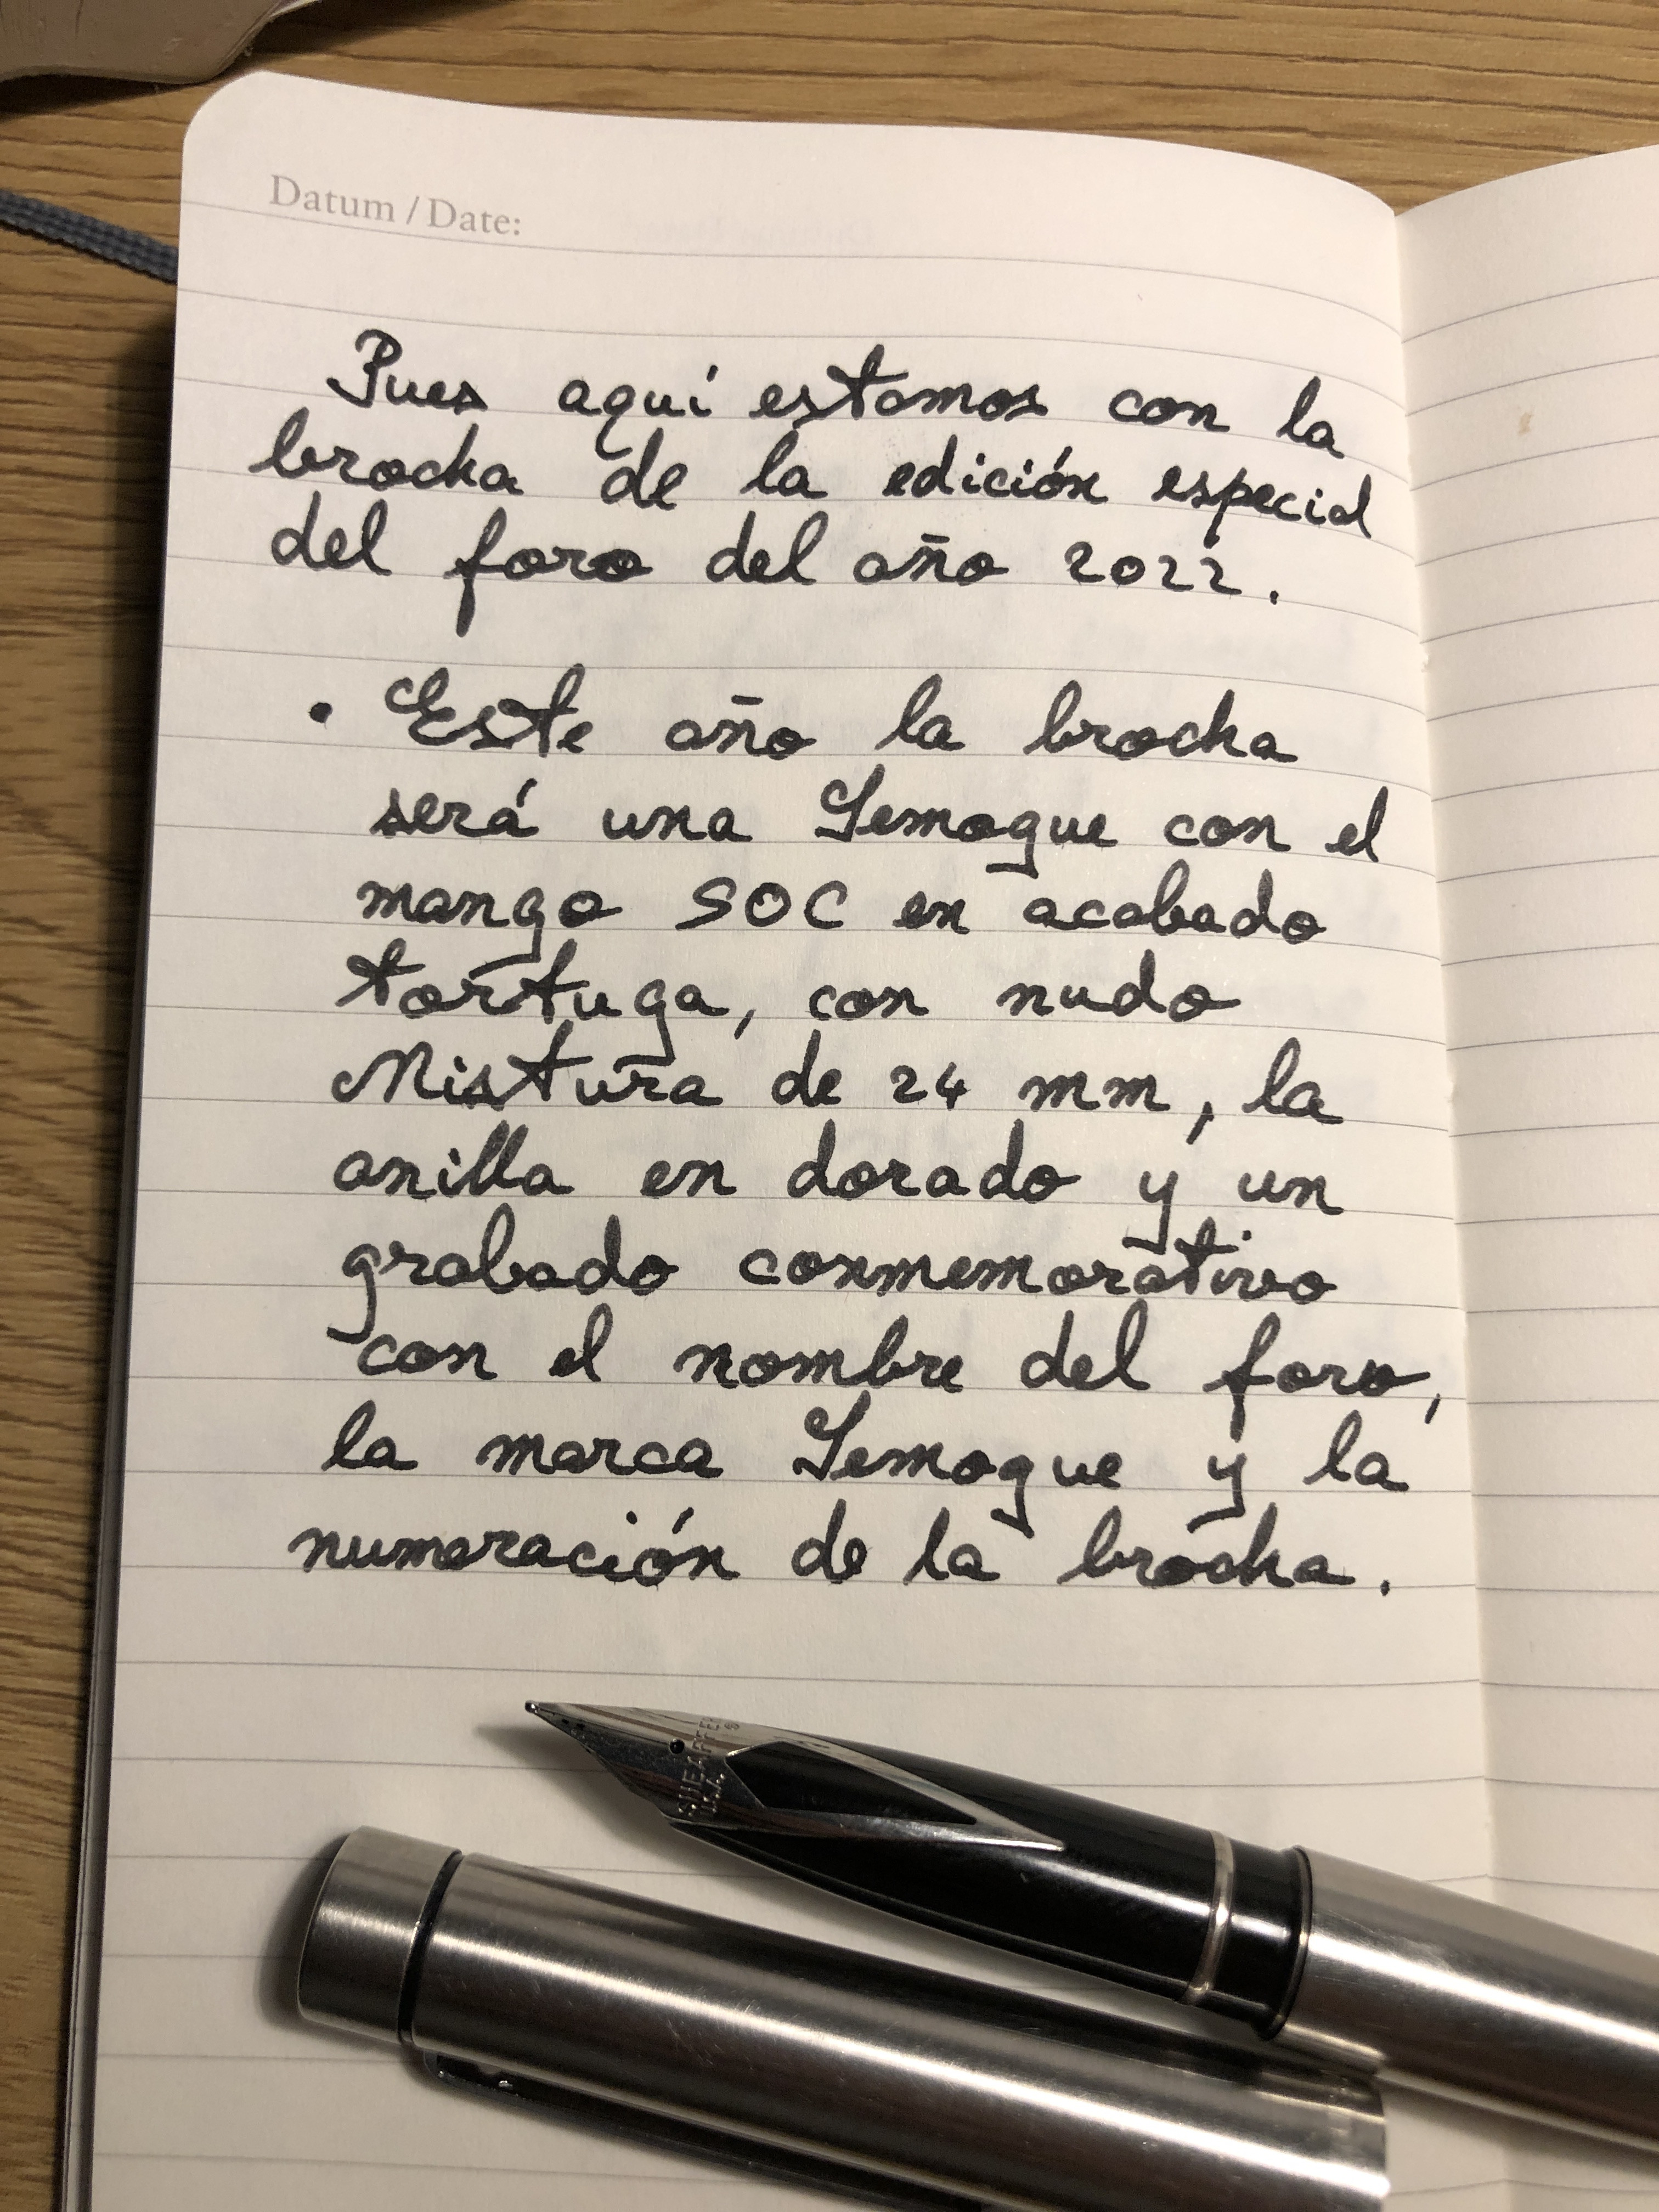 Datum / Date:
Pues aquí estamos con la
brocha de la edición especial
del foro del año 2022.
• Este año la brocha
será una Semogue con el
mango SOC en acabado
tortuga, con nudo
Mistura de 24 mm, la
anilla en dorado y un
grabado conmemorativo
con el nombre del foro,
la marca Semogue y la
numeración de la brocha.
SHEAFFER
U.S.A.